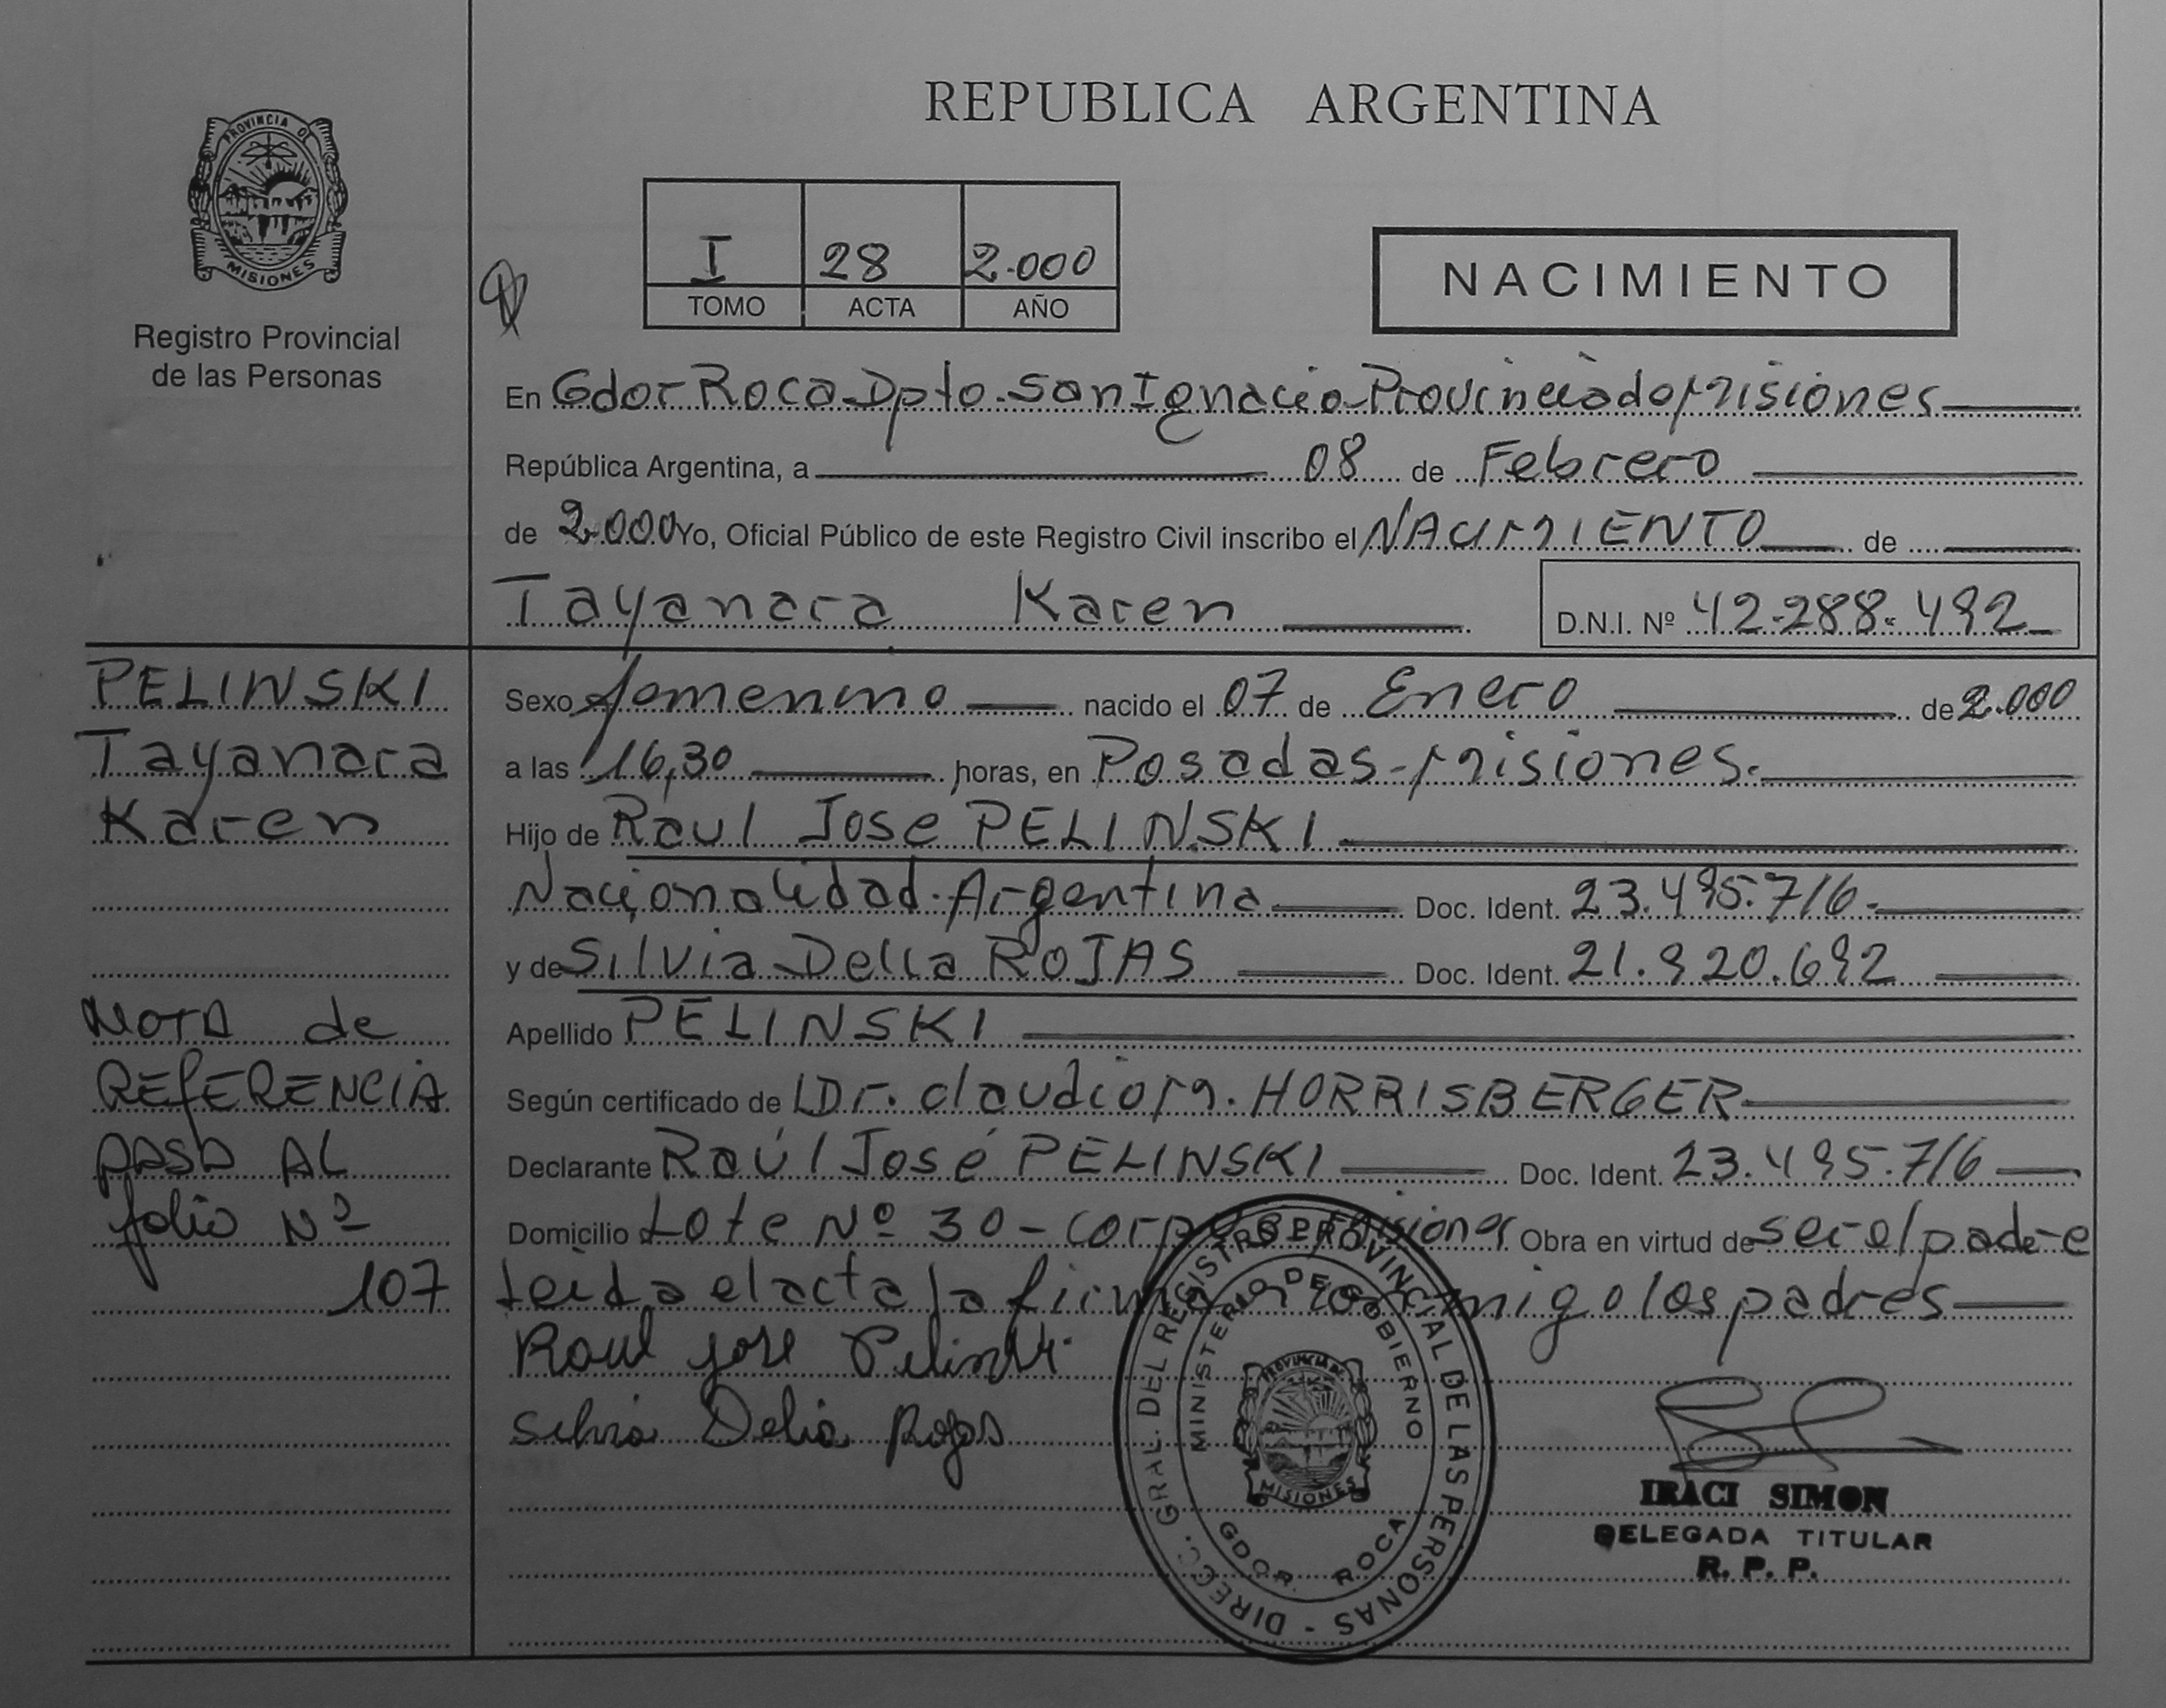 PROVINCIA DE
MISIONES
Registro Provincial
de las Personas
REPUBLICA ARGENTINA
I 28 2.000
TOMO ACTA AÑO
NACIMIENTO
En Gdor Roca Dpto. San Ignacio Provincia de Misiones
República Argentina, a 08 de Febrero
de 2.000 Yo, Oficial Público de este Registro Civil inscribo el NACIMIENTO de
Tayanara Karen D.N.I. Nº 42.288.492
PELINSKI
Tayanara
Karen
NOTA de
REFERENCIA
PASA AL
folio Nº
107
Sexo femenino nacido el 07 de Enero de 2.000
a las 16,30 horas, en Posadas-Misiones.
Hijo de Raul Jose PELINSKI
Nacionalidad Argentina Doc. Ident. 23.495.716.
y de Silvia Delia ROJAS Doc. Ident. 21.920.692
Apellido PELINSKI
Según certificado de Dr. Claudio M. HORRISBERGER
Declarante Raúl José PELINSKI Doc. Ident. 23.495.716
Domicilio Lote Nº 30 - Corpus Misiones Obra en virtud de ser el padre
Leida el acta la firman conmigo los padres
Raul jose Pelinski
Silvia Delia Rojas
DIRECC. GRAL. DEL REGISTRO PROVINCIAL DE LAS PERSONAS -
MINISTERIO DE GOBIERNO
PROVINCIA DE
MISIONES
GDOR. ROCA
IRACI SIMON
DELEGADA TITULAR
R. P. P.